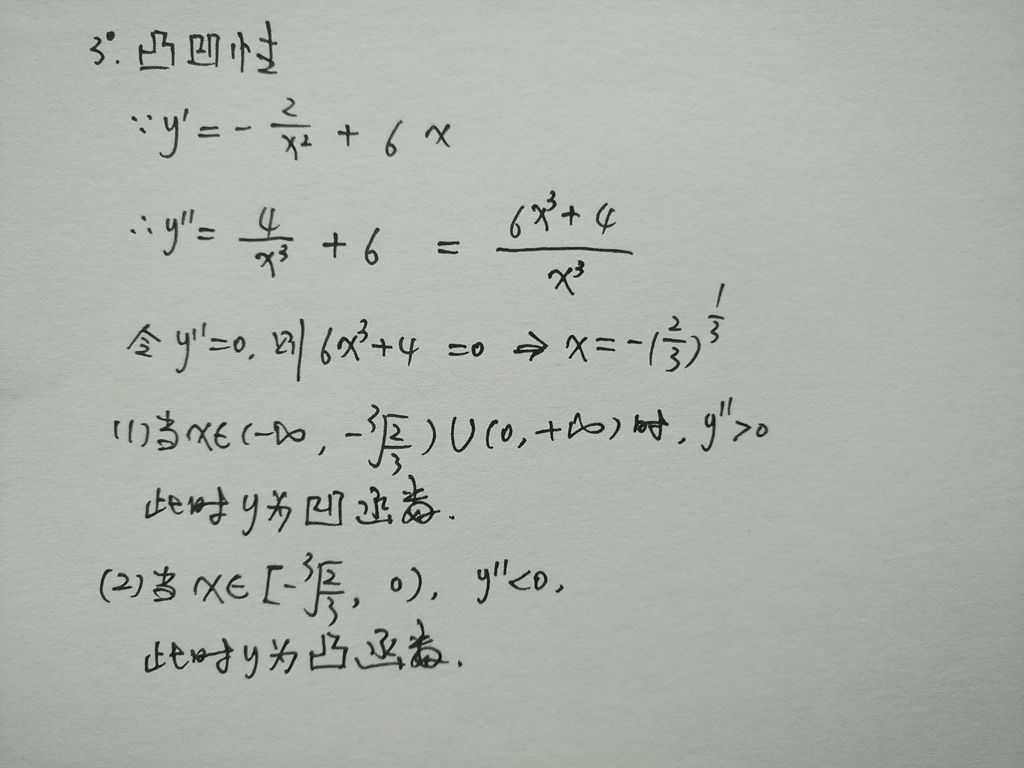 3°. 凸凹性
∵y' = - 2/x² + 6x
∴y'' = 4/x³ + 6 = (6x³+4)/x³
令 y''=0, 则 6x³+4 =0 ⇒ x=-(2/3)^(1/3)
(1)当x∈(-∞, -³√(2/3))∪(0,+∞)时, y''>0
此时y为凹函数.
(2)当 x∈[-³√(2/3), 0), y''<0,
此时y为凸函数.